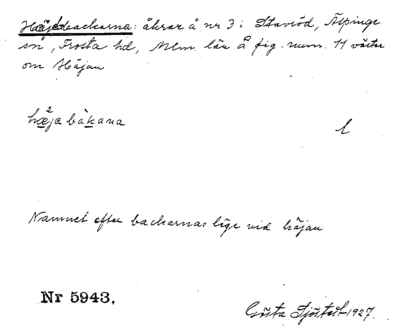 Häjebackarna: åkrar å nr 3 i Stavröd, Äspinge
sn, Frosta hd, Mlm. län å fig. num. 11 väster
om Häjan
2
hæja bàkana
l
Namnet efter backarnas läge vid häjan
Nr 5943.
Gösta Sjöstedt 1927.